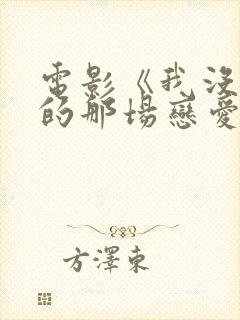 電影《我沒
的那場戀愛
方澤東